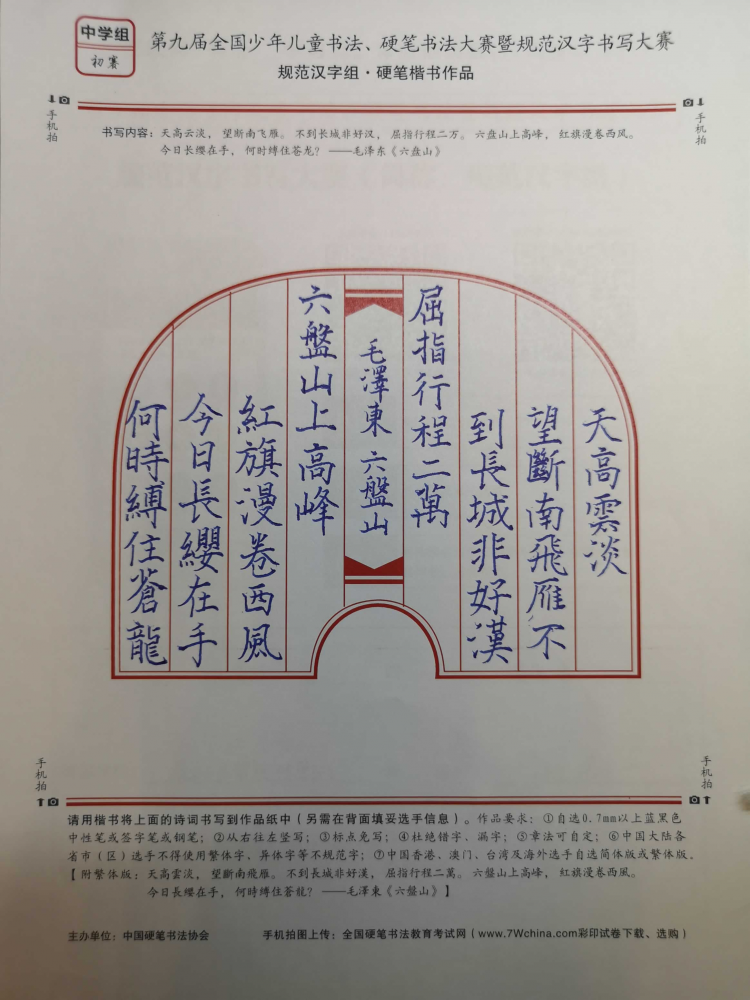 中学组
初赛
第九届全国少年儿童书法、硬笔书法大赛暨规范汉字书写大赛
规范汉字组·硬笔楷书作品
手机拍
手机拍
书写内容：天高云淡， 望断南飞雁。 不到长城非好汉， 屈指行程二万。 六盘山上高峰， 红旗漫卷西风。
今日长缨在手， 何时缚住苍龙？ ——毛泽东《六盘山》
天高雲淡
望斷南飛雁不
到長城非好漢
屈指行程二萬
毛澤東 六盤山
六盤山上高峰
紅旗漫卷西風
今日長纓在手
何時縛住蒼龍
手机拍
手机拍
请用楷书将上面的诗词书写到作品纸中（另需在背面填妥选手信息）。作品要求：①自选0.7mm以上蓝黑色
中性笔或签字笔或钢笔；②从右往左竖写；③标点免写；④杜绝错字、漏字；⑤章法可自定；⑥中国大陆各
省市（区）选手不得使用繁体字、异体字等不规范字；⑦中国香港、澳门、台湾及海外选手自选简体版或繁体版。
【附繁体版：天高雲淡， 望斷南飛雁。 不到長城非好漢， 屈指行程二萬。 六盤山上高峰， 紅旗漫卷西風。
今日長纓在手， 何時縛住蒼龍？ ——毛澤東《六盤山》】
主办单位：中国硬笔书法协会
手机拍图上传：全国硬笔书法教育考试网（www.7Wchina.com彩印试卷下载、选购）